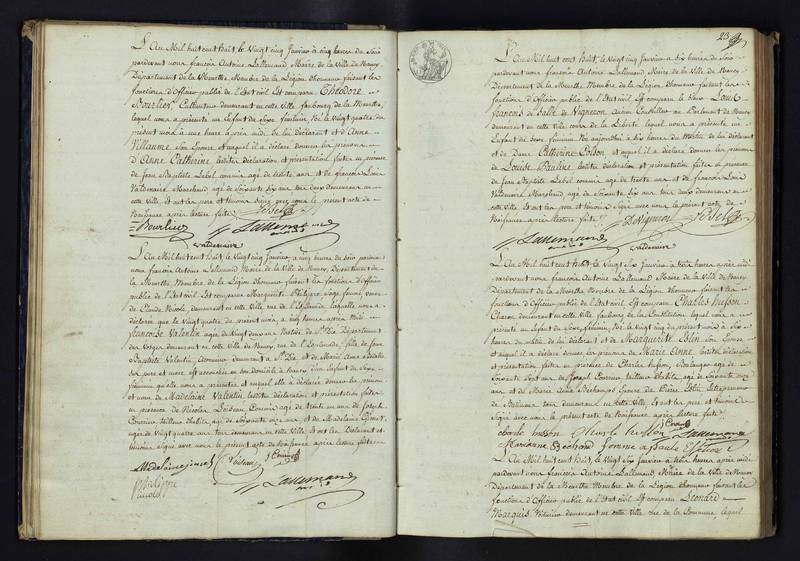 L'An Mil huit cent huit, le Vingt cinq Janvier à cinq heures du Soir
pardevant nous françois Antoine Lallemand, Maire de la Ville de Nancy,
Département de la Meurthe, Membre de la Légion d'honneur faisant les
fonctions d'Officier public de l'Etat civil Est comparu Théodore
Bourlier Cultivateur demeurant en cette ville faubourg de la Meurthe,
lequel nous a présenté un Enfant du Sexe féminin Né le Vingt quatre du
présent mois à une heure après midi de lui déclarant et d'Anne
Villaume son Epouse et auquel il a déclaré donner les prénoms
d'Anne Catherine lesdites déclaration et présentation faites en présence
de Jean Baptiste Lebel commis agé de trente ans et de françois Louis
Valdemaire Marchand agé de Soixante dix ans tous deux demeurans en
cette Ville Et ont les pere et témoins Signé avec nous le présent acte de
Naissance après lecture faite
Lebel
Bourlier Lallemand
valdemaire
L'An Mil huit cent huit, le Vingt cinq Janvier à heures du soir pardevant
nous françois Antoine Lallemand Maire de la Ville de Nancy, Département de
la Meurthe Membre de la Légion d'honneur faisant les fonctions d'Officier
public de l'Etat civil Est comparue Marguerite Philippe Sage femme, veuve
de Claude Nicole, demeurant en cette ville, rue laquelle nous a
déclaré que le Vingt quatre du présent mois, à cinq heures après Midi
françoise Valentin agée de Vingt deux ans Native de St Dié Département
des Vosges demeurant en cette Ville de Nancy, rue de l'Esplanade, fille de Jean
Baptiste Valentin, demeurant à St Dié et de Marie Anne
ses pere et mere est accouchée en son domicile à Nancy d'un Enfant du Sexe
féminin qu'elle nous a présenté et auquel elle a déclaré donner les prénom
et nom de Madelaine Valentin lesdites déclaration et présentation faites
en présence de Nicolas Loiseau Commis agé de trente un ans de Joseph
Couvreur tailleur d'habits, agé de Soixante ans et de Madelaine
agée de Vingt quatre ans tous demeurans en cette Ville Et ont les Déclarante et
témoins signé avec nous le présent acte de Naissance après lecture faite
Lallemand
23
L'An Mil huit cent huit, le Vingt cinq Janvier à Six heures du Soir
pardevant nous françois Antoine Lallemand Maire de la Ville de Nancy,
Département de la Meurthe, Membre de la Légion d'honneur faisant les
fonctions d'Officier public de l'Etat civil Est comparu le Sieur Louis
françois de Sales de Vigneron Ancien Conseiller au Parlement de Nancy
demeurant en cette ville cours de la Liberté lequel nous a présenté un
Enfant du Sexe féminin Né aujourd'hui à dix heures du Matin de lui déclarant
et de Dame Catherine Colson et auquel il a déclaré donner les prénoms
de Louise Pauline lesdites déclaration et présentation faites en présence
de Jean Baptiste Lebel commis agé de trente ans et de françois Louis
Valdemaire Marchand agé de Soixante dix ans tous deux demeurans en
cette Ville Et ont les pere et témoins Signé avec nous le présent acte de
Naissance après lecture faite
DeVigneron Lebel
Lallemand
valdemaire
L'An Mil huit cent huit le Vingt Six Janvier à trois heures après midi
pardevant nous françois Antoine Lallemand Maire de la Ville de Nancy,
Département de la Meurthe Membre de la Légion d'honneur faisant les
fonctions d'Officier public de l'Etat civil Est comparu Charles husson
Charon demeurant en cette Ville faubourg de la Constitution lequel nous a
présenté un Enfant du Sexe féminin Né le Vingt cinq du présent mois à Six
heures du matin de lui déclarant et de Marguerite Eslin son Epouse
et auquel il a déclaré donner les prénoms de Marie Anne lesdites déclaration
et présentation faites en présence de Charles husson, Boulanger agé de
Soixante Sept ans de Joseph Couvreur tailleur d'habits, agé de Soixante ans
et de Marie Anne Béchamps Epouse de Pierre Eslin Entrepreneur
de Bâtimens tous demeurans en cette Ville. Et ont les pere et témoins
Signé avec nous le présent acte de Naissance après lecture faite
charle husson Charle husson Lallemand
Marianne Bechand femme
L'An Mil huit cent huit, le Vingt Six Janvier à trois heures après midi
pardevant nous françois Antoine Lallemand, Maire de la Ville de Nancy
Département de la Meurthe Membre de la Légion d'honneur faisant les
fonctions d'Officier public de l'Etat civil. Est comparu Léonard
Marquis Voiturier demeurant en cette Ville rue de la Commune lequel